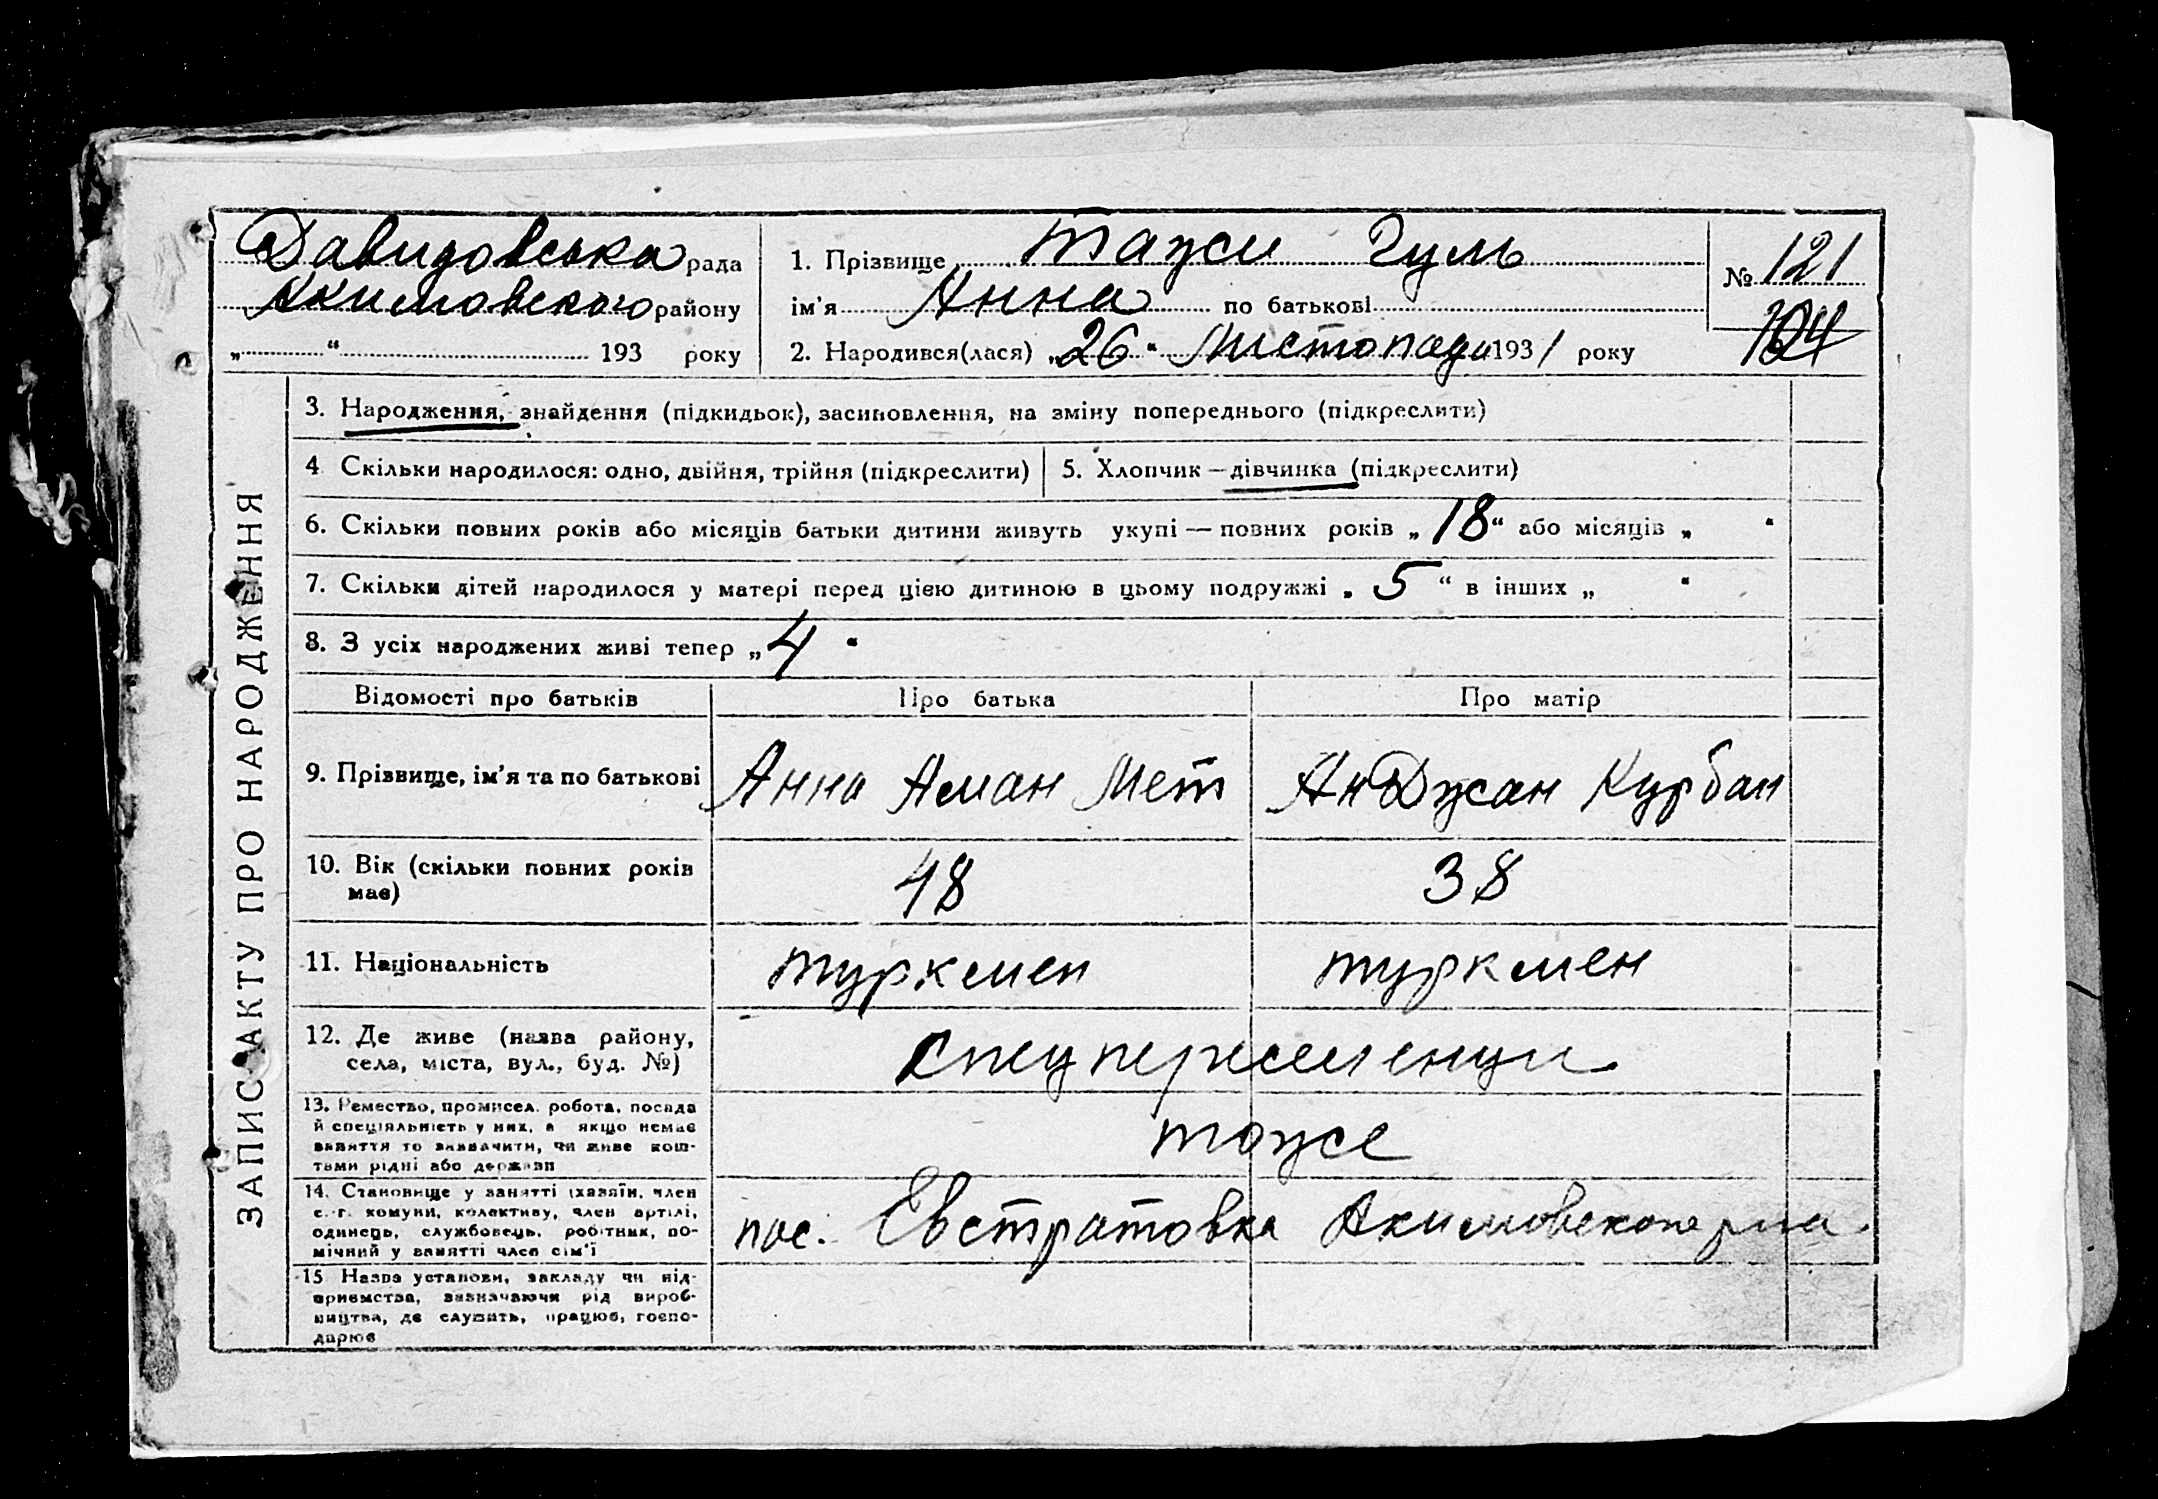 Давидовська рада
Акимовского району
„ “ 193 року
1. Прізвище Тажи Гуль
ім'я Анна по батькові
2. Народився(лася) „26“ Листопада 1931 року
№ 121
104
ЗАПИС АКТУ ПРО НАРОДЖЕННЯ
3. Народження, знайдення (підкидьок), засиновлення, на зміну попереднього (підкреслити)
4 Скільки народилося: одно, двійня, трійня (підкреслити)
5. Хлопчик — дівчинка (підкреслити)
6. Скільки повних років або місяців батьки дитини живуть укупі — повних років „18“ або місяців „ “
7. Скільки дітей народилося у матері перед цією дитиною в цьому подружжі „5“ в інших „ “
8. З усіх народжених живі тепер „4“
Відомості про батьків Про батька Про матір
9. Прізвище, ім'я та по батькові Анна Аман Мет АнДжан Курбан
10. Вік (скільки повних років
має) 48 38
11. Національність туркмен туркмен
12. Де живе (назва району,
села, міста, вул., буд. №) спецпереселенци
13. Ремество, промисел, робота, посада
й спеціяльність у них, а якщо немає
заняття то зазначити, чи живе кош-
тами рідні або держави
тоже
14. Становище у занятті (хазяїн, член
с.-г. комуни, колективу, член артілі,
одинець, службовець, робітник, по-
мічний у занятті член сім'ї
пос. Евстратовка Акимовского р-на
15 Назва установи, закладу чи під-
приємства, зазначаючи рід вироб-
ництва, де служить, працює, госпо-
дарює